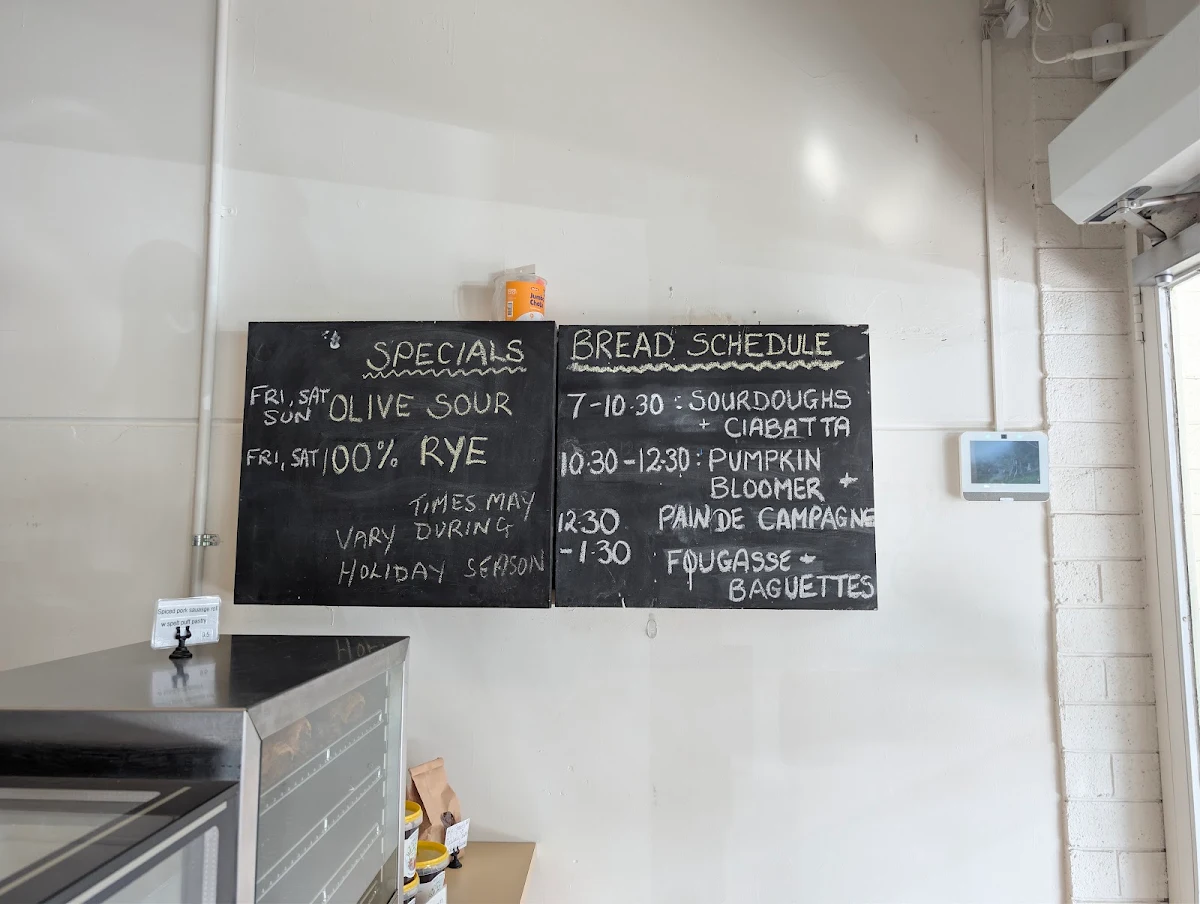 SPECIALS
FRI, SAT
SUN
OLIVE SOUR
FRI, SAT
100% RYE
TIMES MAY
VARY DURING
HOLIDAY SEASON
BREAD SCHEDULE
7-10.30 : SOURDOUGHS
+ CIABATTA
10:30-12:30 : PUMPKIN
BLOOMER +
12:30 PAIN DE CAMPAGNE
-1.30 FOUGASSE +
BAGUETTES
Jumbo
Spiced pork sausage roll
w spelt puff pastry